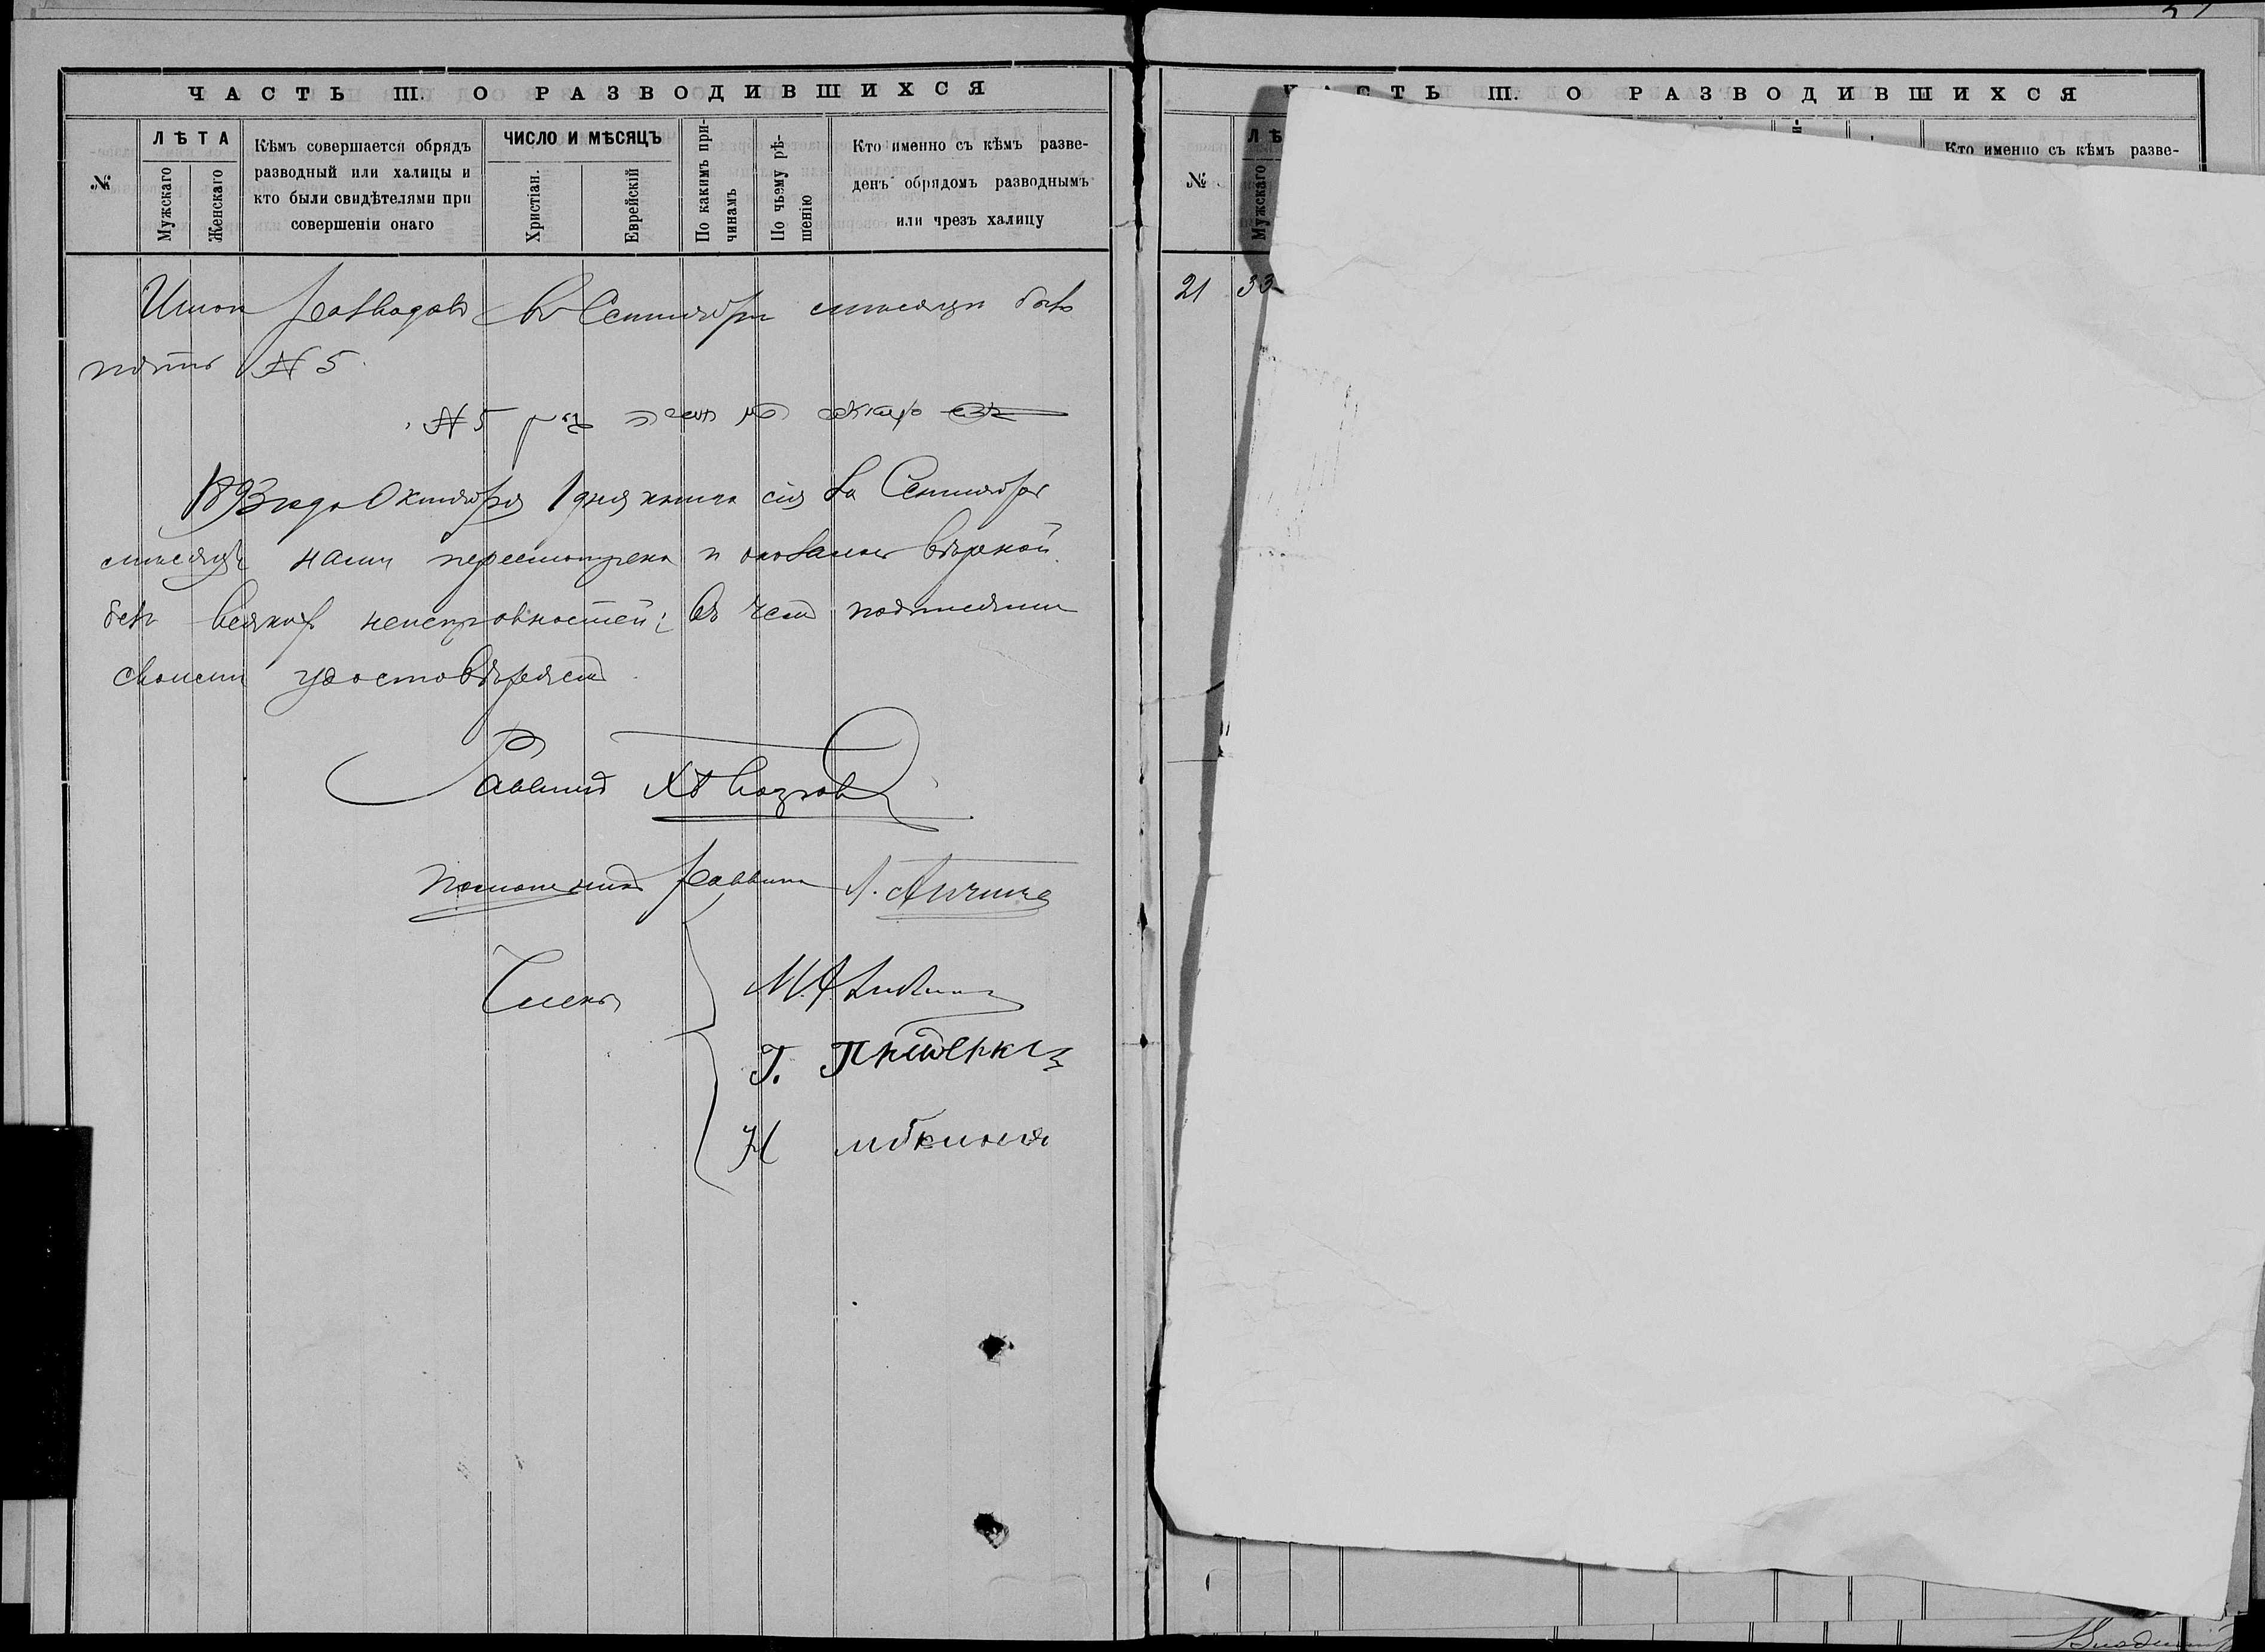 ЧАСТЬ III. О РАЗВОДИВШИХСЯ
№
ЛѢТА
Мужскаго
Женскаго
Кѣмъ совершается обрядъ
разводный или халицы и
кто были свидѣтелями при
совершеніи онаго
ЧИСЛО И МѢСЯЦЪ
Христіан.
Еврейскій
По какимъ при-
чинамъ
По чьему рѣ-
шенію
Кто именно съ кѣмъ разве-
денъ обрядомъ разводнымъ
или чрезъ халицу
Итого разводовъ въ Сентябрѣ мѣсяцѣ было
пять № 5.
№ 5
1893 года Октября 1 дня книга сія за Сентябрь
мѣсяцъ нами пересмотрена и оказалась вѣрной
безъ всякихъ неисправностей; въ чемъ подписями
своими удостовѣряемъ
Раввинъ
Помощникъ Раввина
Члены
М.
Г.
Н
ЧАСТЬ III. О РАЗВОДИВШИХСЯ
№
ЛѢ
Мужскаго
Кто именно съ кѣмъ разве-
21 33